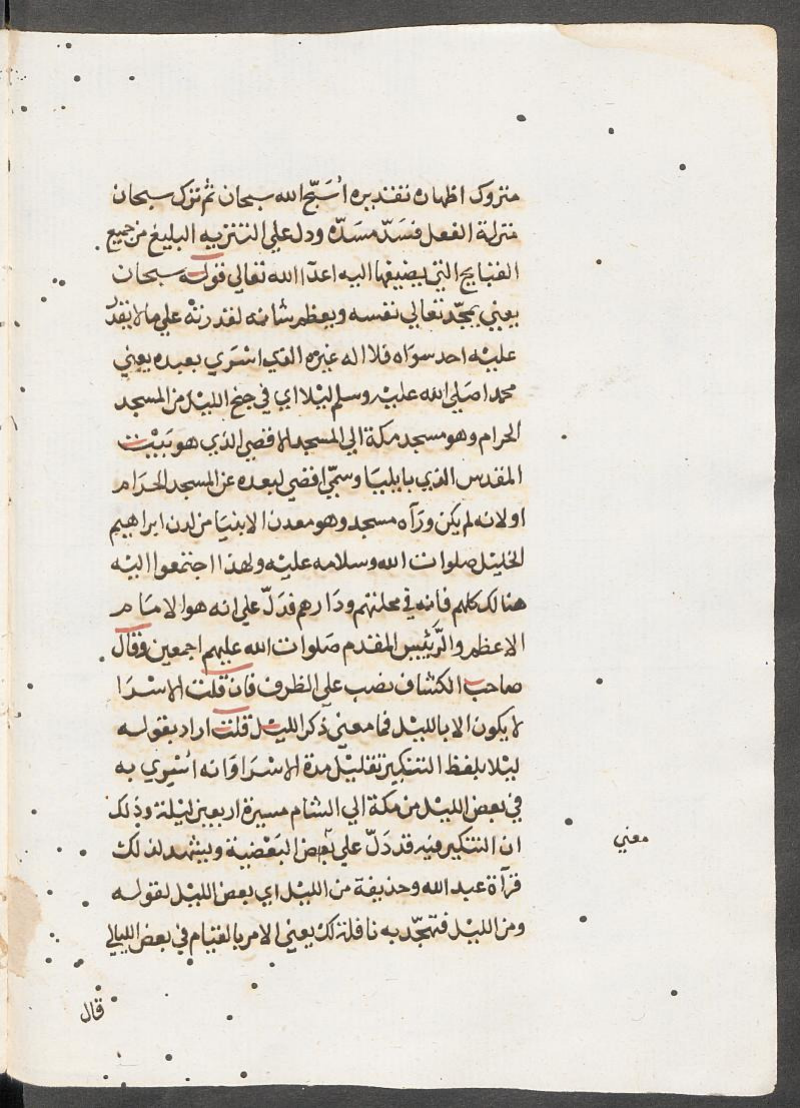 متروك اظهاره تقديره أسبّح الله سبحان ثم نزّل سبحان
منزلة الفعل فسدّ مسدّه ودل علي التنزيه البليغ من جميع
القبايح التي يضيفها اليه اعدآ الله تعالي قوله سبحان
يعني يمجّد تعالي نفسه ويعظم شانه لقدرته علي ما لا يقدر
عليه احد سواه فلا اله غيره الذي اسري بعبده يعني
محمدا صلي الله عليه وسلم ليلا اي في جنح الليل من المسجد
الحرام وهو مسجد مكة الي المسجد الاقصي الذي هو بيت
المقدس الذي بايليا وسمّي اقصي لبعده عن المسجد الحرام
او لانه لم يكن ورآه مسجد وهو معدن الانبيا من لدن ابراهيم
الخليل صلوات الله وسلامه عليه ولهذا اجتمعوا اليه
هنالك كلهم فانه في محلتهم ودارهم فدلّ علي انه هو الامام
الاعظم والرّئيس المقدم صلوات الله عليهم اجمعين وقال
صاحب الكشاف نصب علي الظرف فان قلت الاسرا
لا يكون الا بالليل فما معني ذكر الليل قلت اراد بقوله
ليلا بلفظ التنكير تقليل مدة الاسرا وانه أسري به
في بعض الليل من مكة الي الشام مسيرة اربعين ليلة وذلك
ان التنكير فيه قد دلّ علي البعضية ويشهد لذلك
قرآة عبد الله وحذيفة من الليل اي بعض الليل لقوله
ومن الليل فتهجّد به نافلة لك يعني الامر بالقيام في بعض الليالي
معني
قال